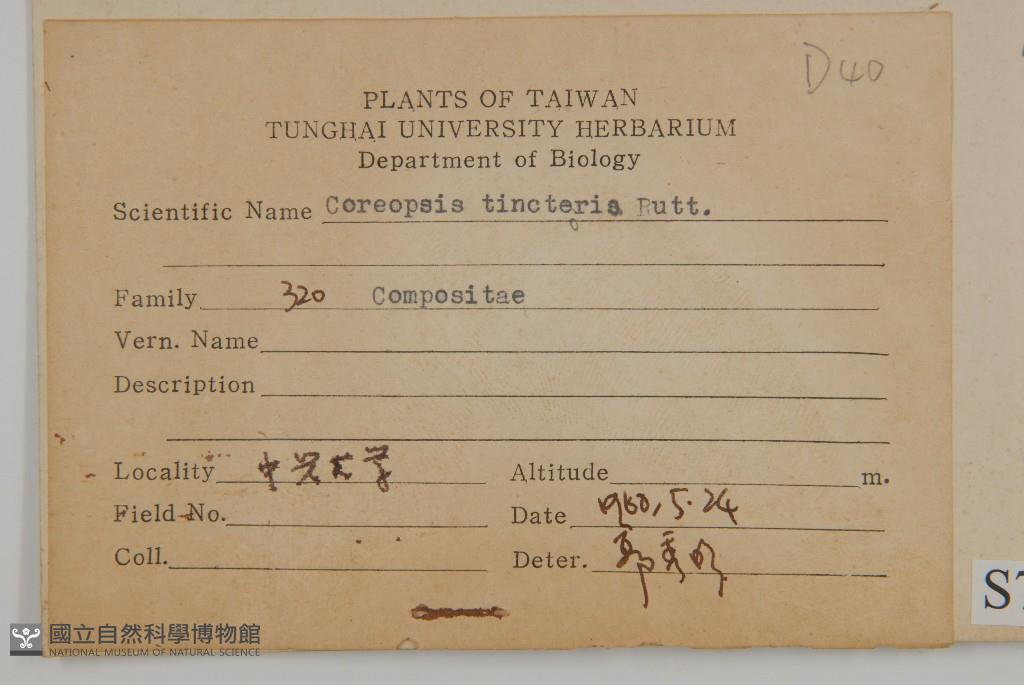 D40
PLANTS OF TAIWAN
TUNGHAI UNIVERSITY HERBARIUM
Department of Biology
Scientific Name Coreopsis tincteria Rutt.
o
Family 320 Compositae
Vern. Name
Description
Locality 中兴大学 Altitude m.
Field No. Date 1960.5.24
Coll. Deter. 郭秀
ST
國立自然科學博物館
NATIONAL MUSEUM OF NATURAL SCIENCE